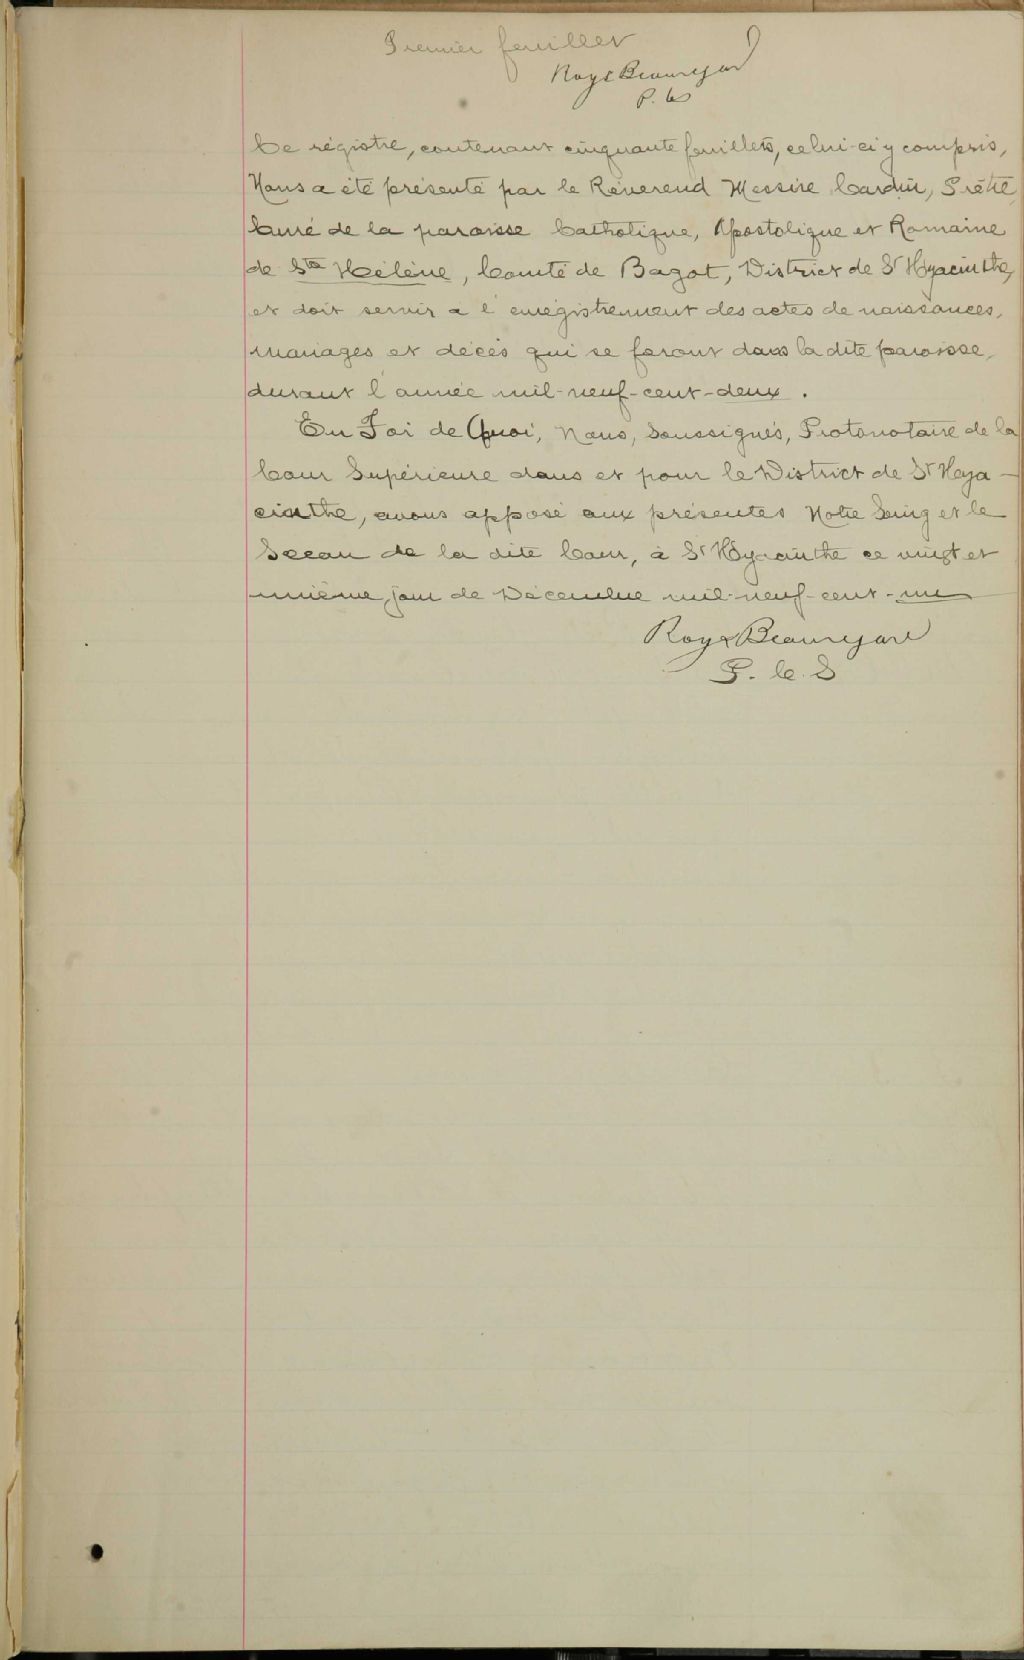 Premier feuillet
Roy & Beauregard
P. C. S
Ce régistre, contenant cinquante feuillets, celui-ci y compris,
Nous a été présenté par le Révérend Messire Cardin, Prêtre
Curé de la paroisse Catholique, Apostolique et Romaine
de Ste Hélène, Comté de Bagot, District de St Hyacinthe,
et doit servir a l'enrégistrement des actes de naissances,
mariages et décès qui se feront dans la dite paroisse,
durant l'année mil-neuf-cent-deux.
En Foi de Quoi, Nous, Soussignés, Protonotaire de la
Cour Supérieure dans et pour le District de St Hya-
cinthe, avons apposé aux présentes Notre Seing et le
Sceau de la dite Cour, à St Hyacinthe ce vingt et
unième jour de Décembre mil-neuf-cent-un
Roy & Beauregard
P. C. S